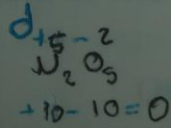 d +5 -2
N₂O₅
+10 - 10 = 0